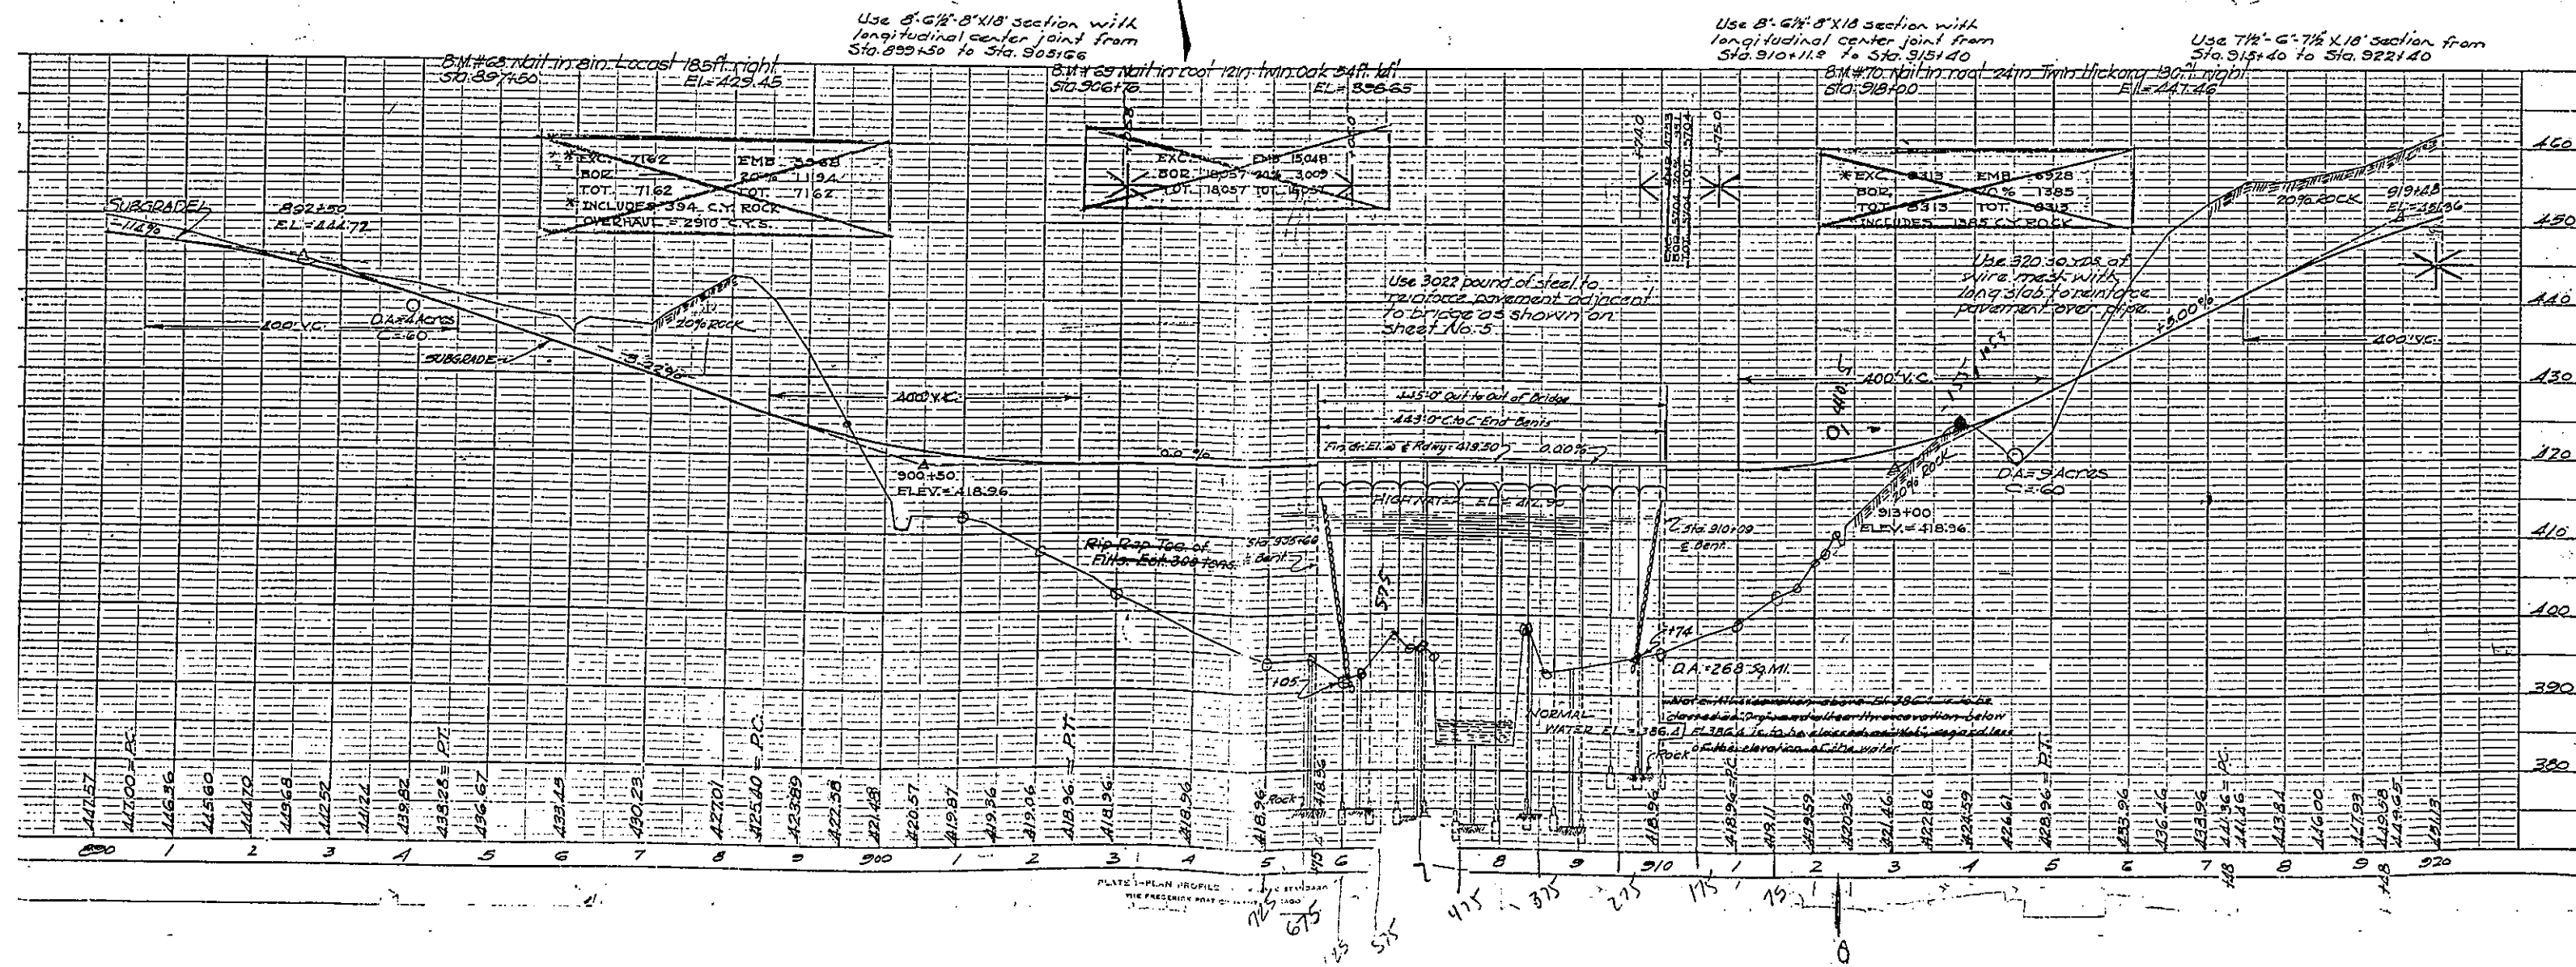 Use 8"-6½"-8"X18' section with
longitudinal center joint from
Sta. 899+50 to Sta. 905+66
Use 8"-6½"-8"X18 section with
longitudinal center joint from
Sta. 910+11.0 to Sta. 915+40
Use 7½"-6"-7½"X18' section from
Sta. 915+40 to Sta. 922+40
B.M.#68 Nail in 8in. Locast 185ft. right
Sta. 897+50 EL=429.45
B.M.#69 Nail in root 12in. twin Oak 54ft. left
Sta. 906+76 EL=398.65
B.M.#70 Nail in root 24in. Twin Hickory 130ft. right
Sta. 918+00 EL=447.46
* EXC. 7162 EMB. 5968
BOR. 20% 1194
TOT. 7162 TOT. 7162
* INCLUDES 394 C.Y. ROCK
OVERHAUL = 2910 C.Y.S.
EXC. EMB. 15048
BOR. 18057 20% 3009
TOT. 18057 TOT. 18057
+05.0
+74.0
+75.0
* EXC. 8313 EMB. 6928
BOR. 20% 1385
TOT. 8313 TOT. 8313
INCLUDES 1385 C.Y. ROCK
SUBGRADE
-1.14%
892+50
EL=444.72
400' V.C.
D.A.=4 Acres
C=.60
SUBGRADE
-3.22%
20% ROCK
400' V.C.
900+50
ELEV.=418.96
0.0%
Rip Rap Toe of
Fills. Est. 300 tons
Use 3022 pound of steel to
reinforce pavement adjacent
to bridge as shown on
sheet No. 5
445'-0" Out to Out of Bridge
443'-0" C. to C. End Bents
Fin. Gr. El. @ ¢ Rdwy. 419.50 0.00%
HIGH WATER EL=412.90
Sta. 905+66
¢ Bent
Sta. 910+09
¢ Bent
575
+05
+74
D.A.=268 Sq. Mi.
NORMAL
WATER EL.=386.4
Note: All excavation above El. 386.4 is to be
classed as Dry and all other excavation below
El. 386.4 is to be classed as Wet, regardless
of the elevation of the water
Rock
Rock
400' V.C.
410.5
Use 320 sq. yds. of
wire mesh with
long slab to reinforce
pavement over pipe
20% ROCK
913+00
ELEV.=418.96
D.A.=9 Acres
C=.60
+5.00%
20% ROCK
919+48
EL=451.36
400' V.C.
460
450
440
430
420
410
400
390
380
447.57
447.00=P.C.
446.36
445.60
444.70
443.68
442.52
441.24
439.82
438.28=P.T.
436.67
433.45
430.23
427.01
425.40=P.C.
423.89
422.58
421.48
420.57
419.87
419.36
419.06
418.96=P.T.
418.96
418.96
418.96
418.96
418.96
418.96=P.C.
419.11
419.59
420.36
421.46
422.86
424.59
426.61
428.96=P.T.
433.96
436.46
438.96
441.36=P.C.
441.46
443.84
446.00
447.93
449.58
449.65
451.13
890 1 2 3 4 5 6 7 8 9 900 1 2 3 4 5 6 7 8 9 910 1 2 3 4 5 6 7 8 9 920
+48
+48
PLATE 1-PLAN PROFILE
725 675 575 475 375 275 175 75
0